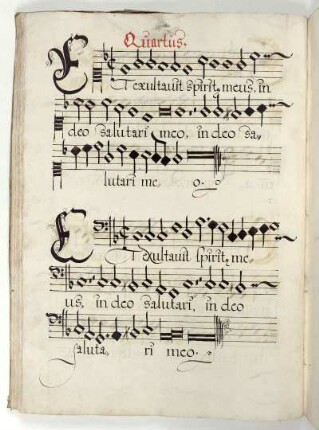 Quartus.
Et exultavit spirit, meus, in
deo salutari meo, in deo sa-
lutari me- o.
Et exultavit spirit, me-
us, in deo salutari, in deo
saluta- ri meo.